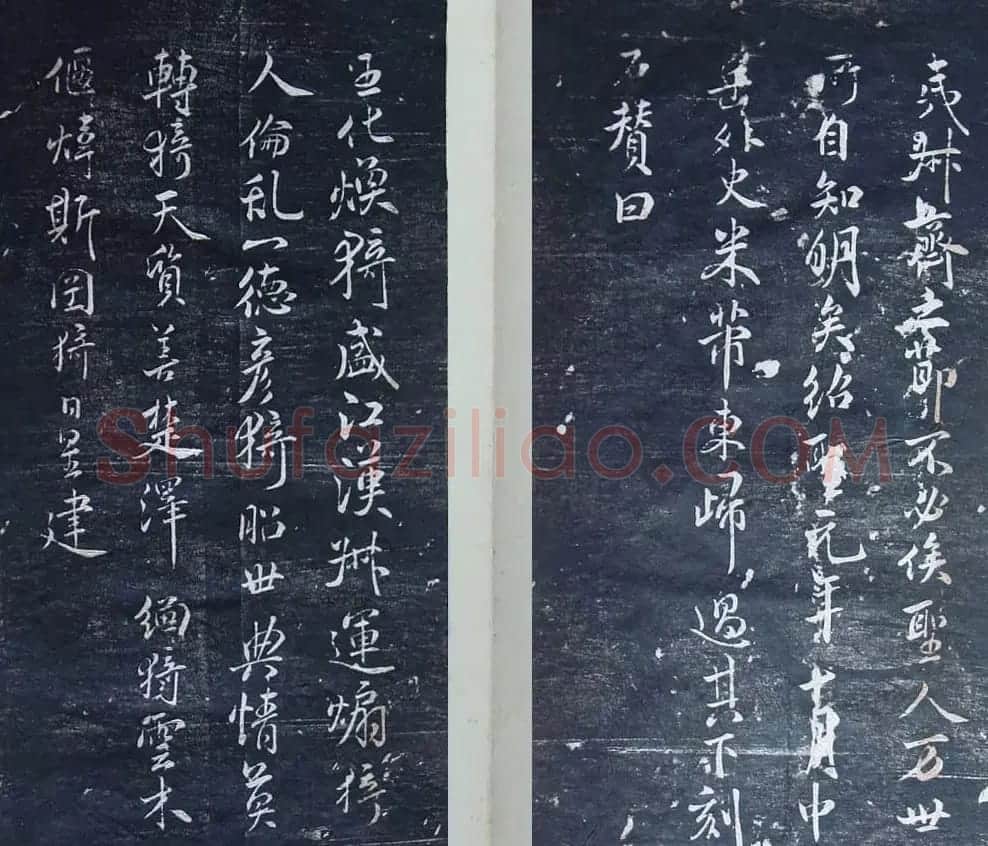 不必俟聖人万世
可自知明矣紹聖元年十月中
岳外史米芾東歸過其下刻
石贊曰
王化焕猗盛江漢叔運煽猗
人倫乱一德彦猗昭世典情莫
轉猗天質善楚澤緬猗雲木
偃焯斯圖猗日星建
Shufaziliao.COM